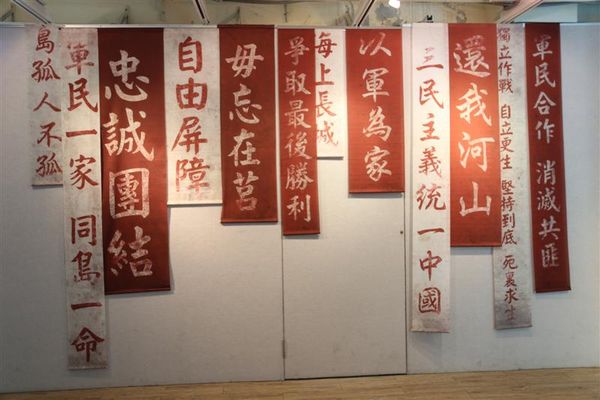 軍民合作 消滅共匪
獨立作戰 自立更生 堅持到底 死裏求生
還我河山
三民主義統一中國
以軍為家
海上長城
爭取最後勝利
毋忘在莒
自由屏障
忠誠團結
軍民一家 同島一命
島孤人不孤